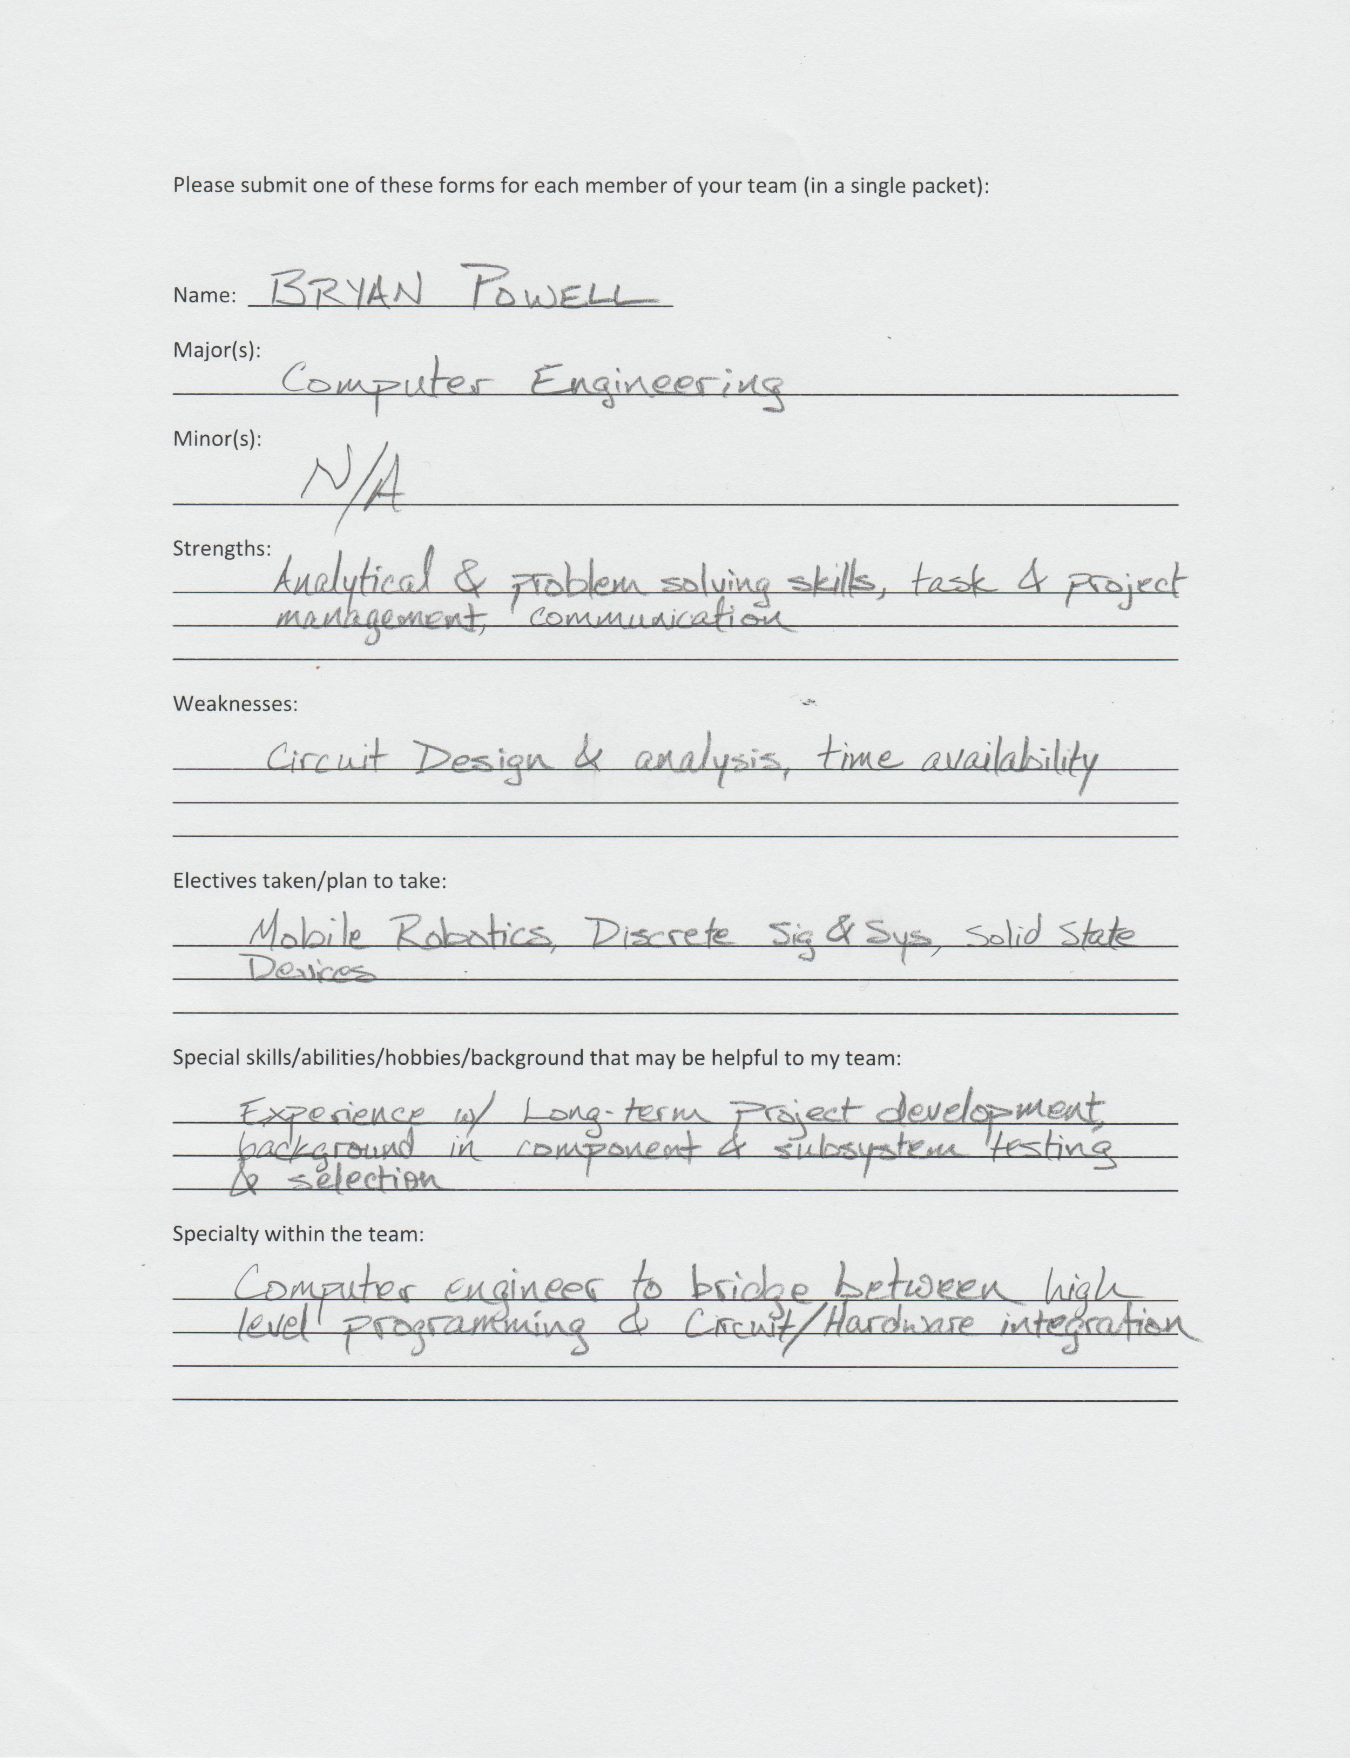 Please submit one of these forms for each member of your team (in a single packet):
Name: BRYAN POWELL
Major(s):
Computer Engineering
Minor(s):
N/A
Strengths:
Analytical & problem solving skills, task & project
management, communication
Weaknesses:
Circuit Design & analysis, time availability
Electives taken/plan to take:
Mobile Robotics, Discrete Sig & Sys, Solid State
Devices
Special skills/abilities/hobbies/background that may be helpful to my team:
Experience w/ Long-term project development,
background in component & subsystem testing
& selection
Specialty within the team:
Computer engineer to bridge between high
level programming & Circuit/Hardware integration